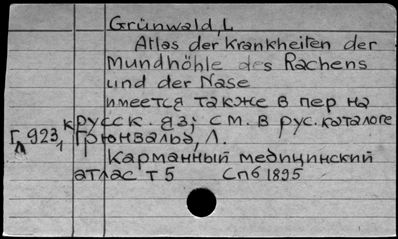 Grünwald, L
Atlas der Krankheiten der
Mundhöhle des Rachens
und der Nase
имеется также в пер на
русск. яз; см. в рус. каталоге
Гл 923, Грюнвальд, Л.
Карманный медицинский
атлас т 5 Спб 1895